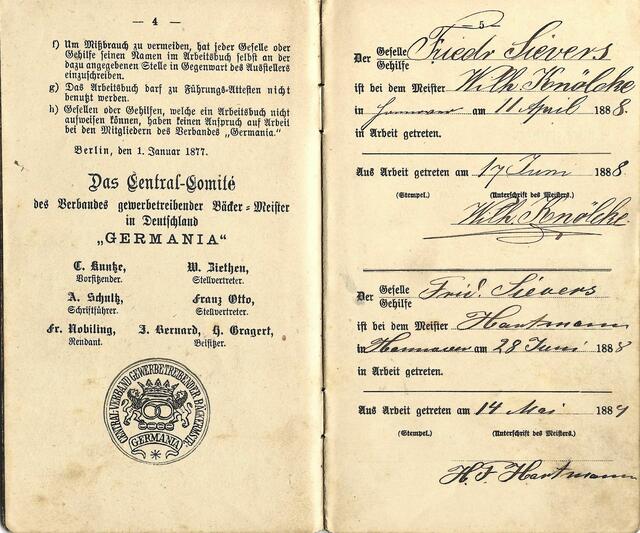 — 4 —
f) Um Mißbrauch zu vermeiden, hat jeder Geselle oder
Gehilfe seinen Namen im Arbeitsbuch selbst an der
dazu angegebenen Stelle in Gegenwart des Ausstellers
einzuschreiben.
g) Das Arbeitsbuch darf zu Führungs-Attesten nicht
benutzt werden.
h) Gesellen oder Gehilfen, welche ein Arbeitsbuch nicht
aufweisen können, haben keinen Anspruch auf Arbeit
bei den Mitgliedern des Verbandes „Germania."
Berlin, den 1. Januar 1877.
Das Central-Comité
des Verbandes gewerbetreibender Bäcker-Meister
in Deutschland
„GERMANIA"
C. Kuntze, W. Ziethen,
Vorsitzender. Stellvertreter.
A. Schultz, Franz Otto,
Schriftführer. Stellvertreter.
Fr. Nobiling, J. Bernard, H. Gragert,
Rendant. Beisitzer.
CENTRAL-VERBAND GEWERBETREIBENDER BÄCKERMSTR.
GERMANIA
5
Der Geselle Friedr Sievers
Gehilfe
ist bei dem Meister Wilh. Knölcke
in Hannover am 11 April 1888.
in Arbeit getreten.
Aus Arbeit getreten am 17 Juni 1888.
(Stempel.) (Unterschrift des Meisters.)
Wilh. Knölcke
Der Geselle Frid. Sievers
Gehilfe
ist bei dem Meister Hartmann
in Hannover am 28 Juni 1888
in Arbeit getreten.
Aus Arbeit getreten am 14 Mai 1889
(Stempel.) (Unterschrift des Meisters.)
H. F. Hartmann